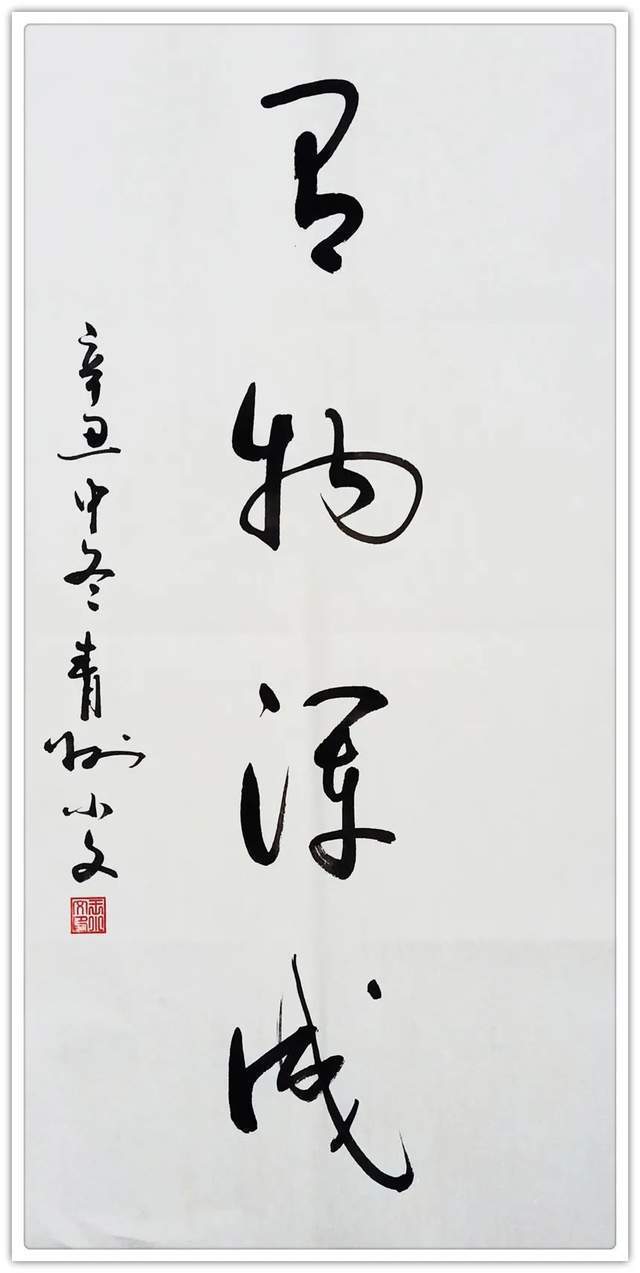 有物浑成
辛丑中冬青州小文